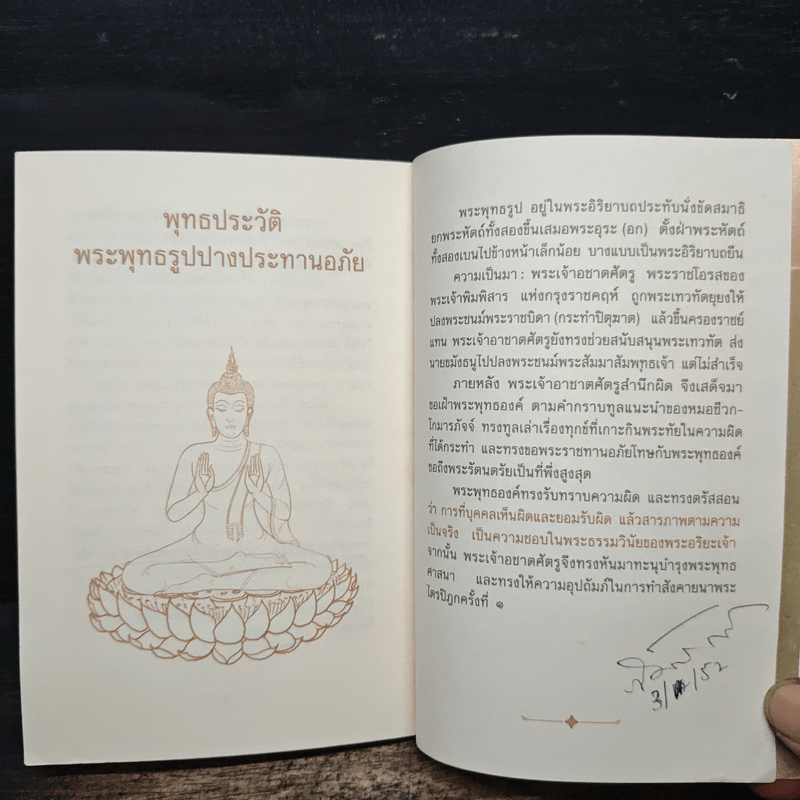 พุทธประวัติ
พระพุทธรูปปางประทานอภัย
พระพุทธรูป อยู่ในพระอิริยาบถประทับนั่งขัดสมาธิ
ยกพระหัตถ์ทั้งสองขึ้นเสมอพระอุระ (อก) ตั้งฝ่าพระหัตถ์
ทั้งสองเบนไปข้างหน้าเล็กน้อย บางแบบเป็นพระอิริยาบถยืน
ความเป็นมา : พระเจ้าอชาตศัตรู พระราชโอรสของ
พระเจ้าพิมพิสาร แห่งกรุงราชคฤห์ ถูกพระเทวทัตยุยงให้
ปลงพระชนม์พระราชบิดา (กระทำปิตุฆาต) แล้วขึ้นครองราชย์
แทน พระเจ้าอชาตศัตรูยังทรงช่วยสนับสนุนพระเทวทัต ส่ง
นายขมังธนูไปปลงพระชนม์พระสัมมาสัมพุทธเจ้า แต่ไม่สำเร็จ
ภายหลัง พระเจ้าอชาตศัตรูสำนึกผิด จึงเสด็จมา
ขอเฝ้าพระพุทธองค์ ตามคำกราบทูลแนะนำของหมอชีวก-
โกมารภัจจ์ ทรงทูลเล่าเรื่องทุกข์ที่เกาะกินพระทัยในความผิด
ที่ได้กระทำ และทรงขอพระราชทานอภัยโทษกับพระพุทธองค์
ขอถึงพระรัตนตรัยเป็นที่พึ่งสูงสุด
พระพุทธองค์ทรงรับทราบความผิด และทรงตรัสสอน
ว่า การที่บุคคลเห็นผิดและยอมรับผิด แล้วสารภาพตามความ
เป็นจริง เป็นความชอบในพระธรรมวินัยของพระอริยะเจ้า
จากนั้น พระเจ้าอชาตศัตรูจึงทรงหันมาทะนุบำรุงพระพุทธ
ศาสนา และทรงให้ความอุปถัมภ์ในการทำสังคายนาพระ
ไตรปิฎกครั้งที่ ๑